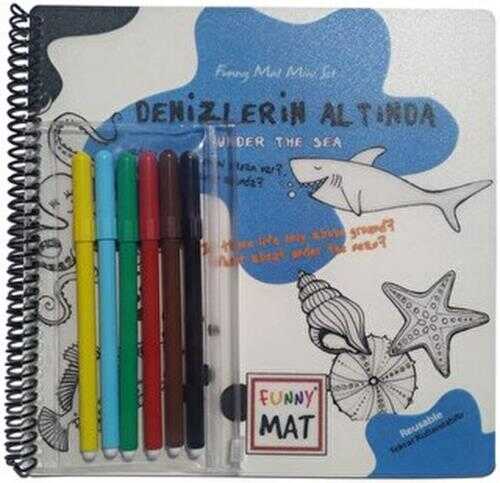 Funny Mat Mini Set
DENiZLERiN ALTINDA
UNDER THE SEA
Is there life only above ground?
What about under the
FUNNY
MAT
Reusable
Tekrar Kullanılabilir